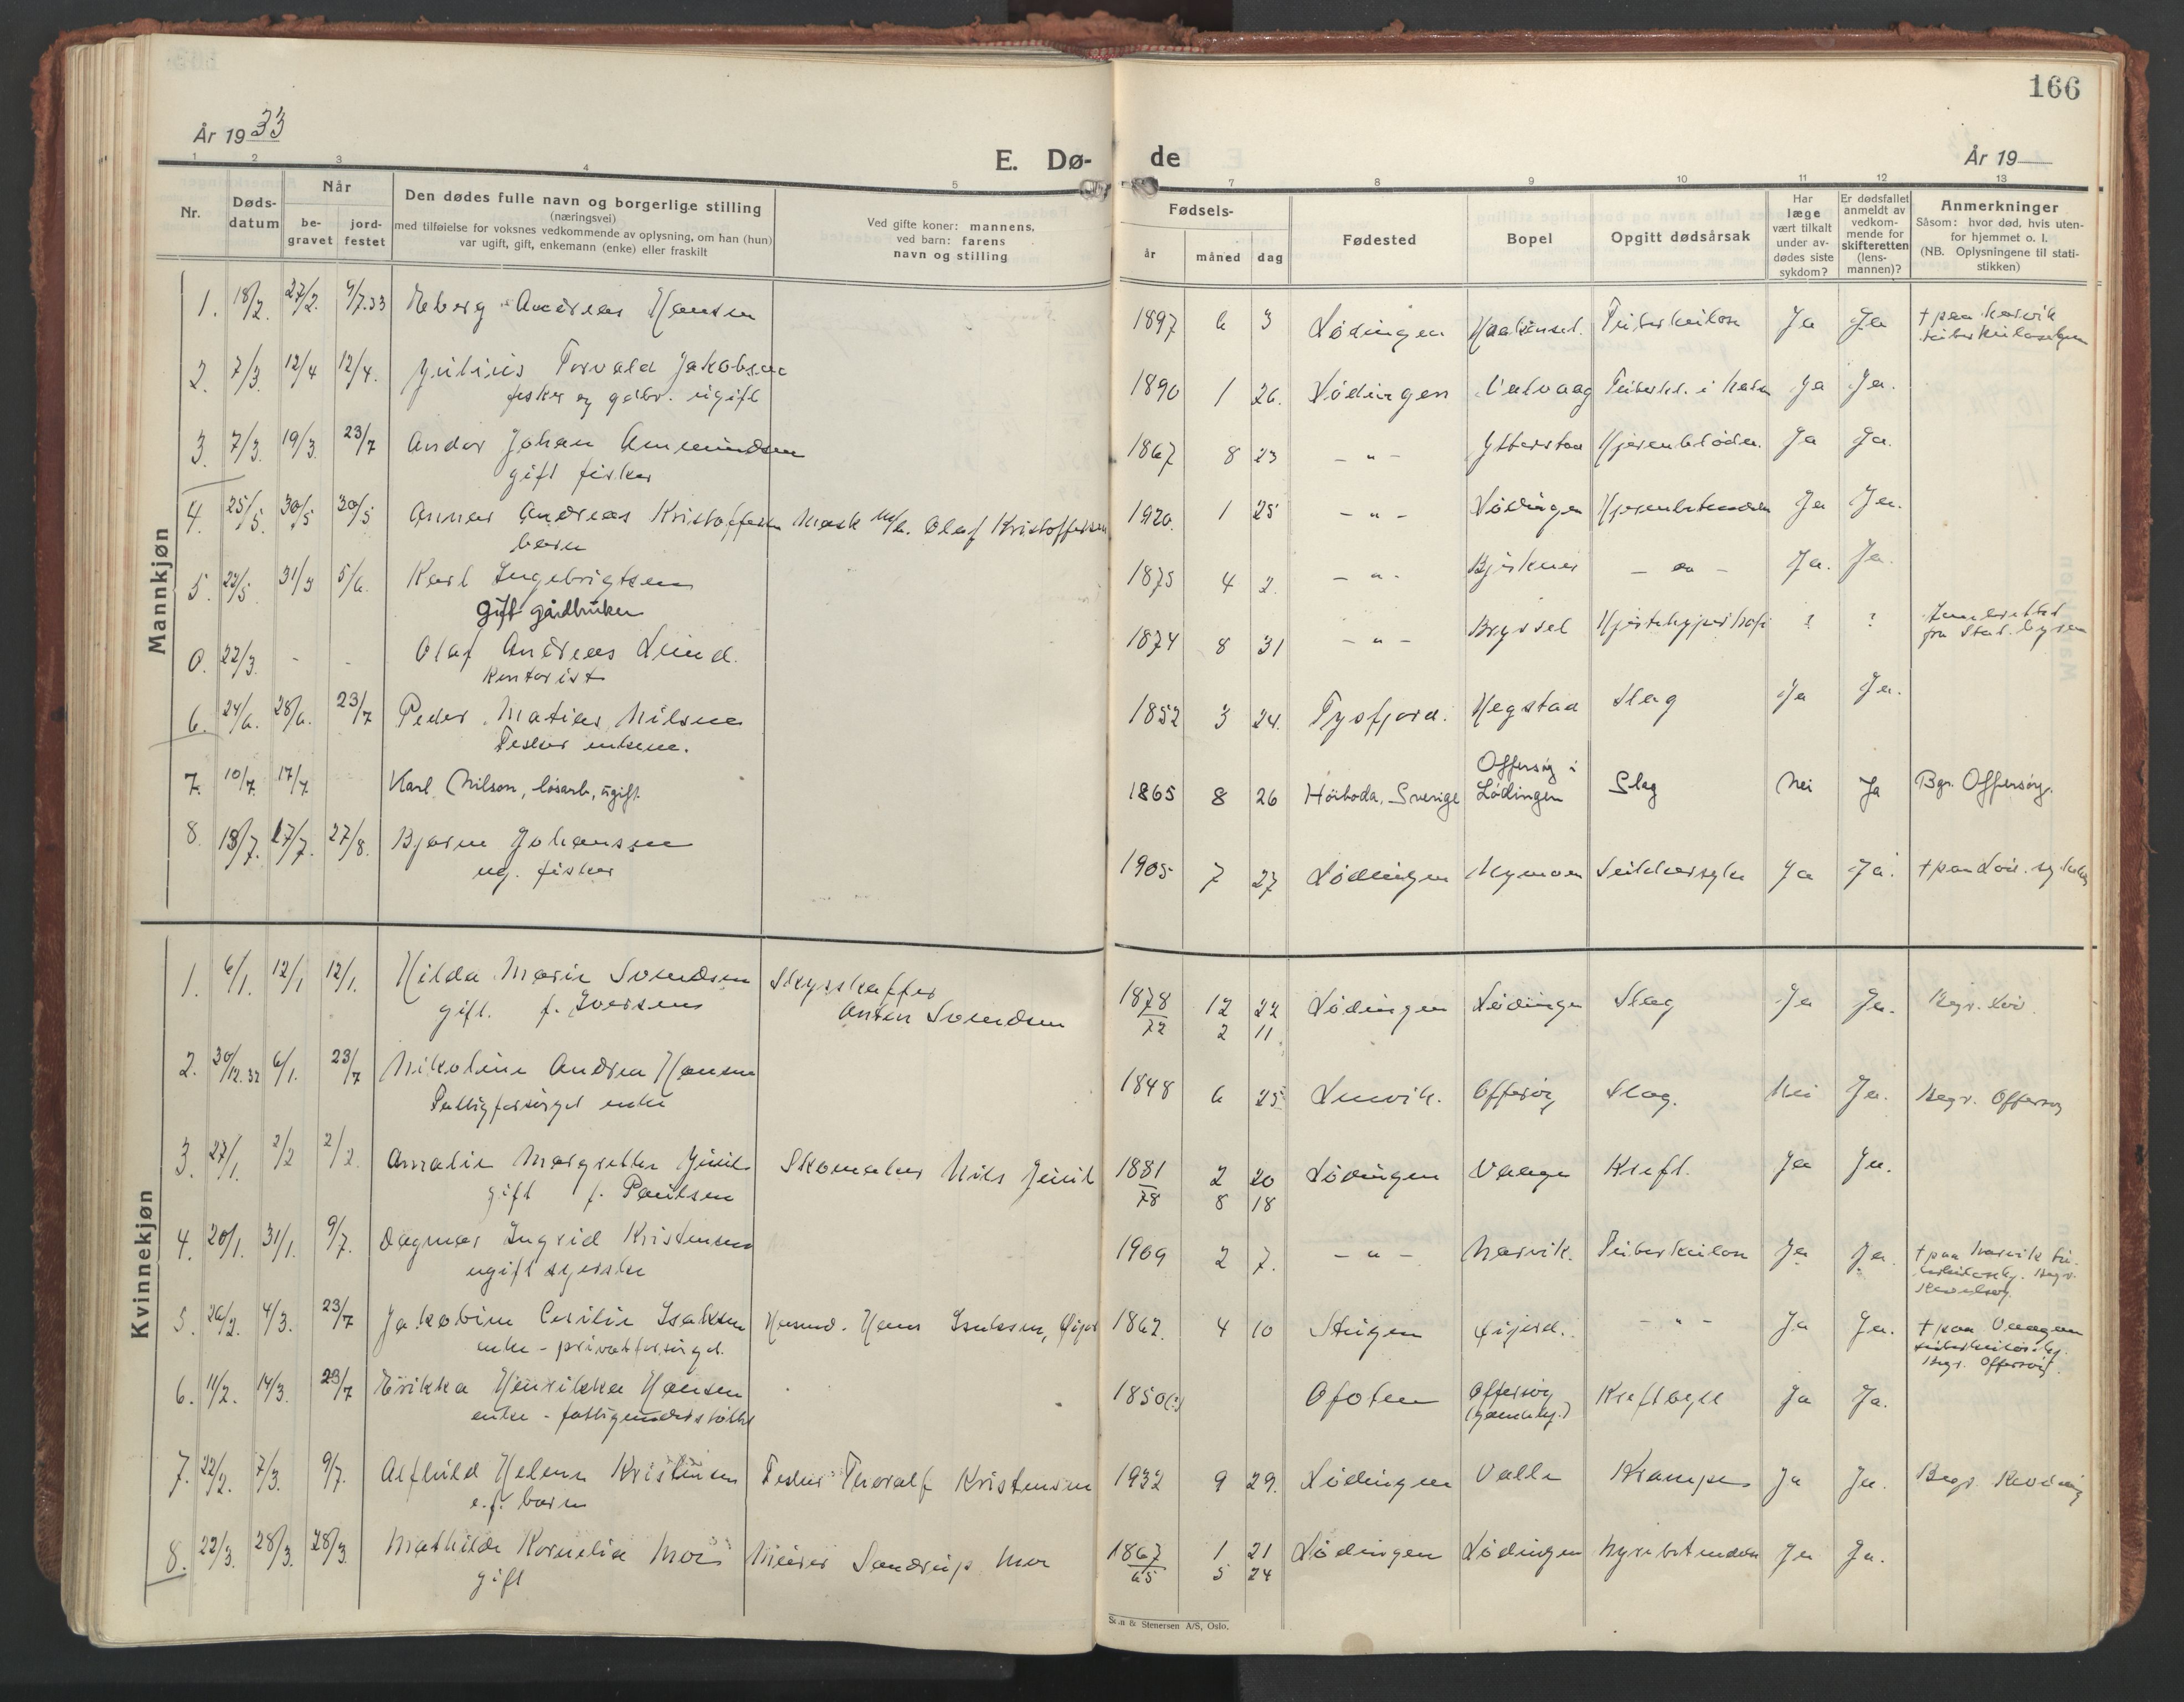 166
År 1933
E. Dø-
de
År 19
1 2 3 4 5 7 8 9 10 11 12 13
Nr.
Døds-
datum
Når
be-
gravet
jord-
festet
Den dødes fulle navn og borgerlige stilling
(næringsvei)
med tilføielse for voksnes vedkommende av oplysning, om han (hun)
var ugift, gift, enkemann (enke) eller fraskilt
Ved gifte koner: mannens,
ved barn: farens
navn og stilling
Fødsels-
år måned dag
Fødested
Bopel
Opgitt dødsårsak
Har
læge
vært tilkalt
under av-
dødes siste
sykdom?
Er dødsfallet
anmeldt av
vedkom-
mende for
skifteretten
(lens-
mannen)?
Anmerkninger
Såsom: hvor død, hvis uten-
for hjemmet o. l.
(NB. Oplysningene til stati-
stikken)
Mannkjøn
1. 18/2. 27/2. 9/7.33 Eberg Andreas Hansen 1897 6 3 Lødingen Tuberkulose Ja Ja † paa Narvik
tuberkulosehjem
2. 7/3. 12/4 12/4. Julius Torvald Jakobsen 1890 1 26. Lødingen Valvaag Tuberkl. i Ja Ja.
fisker og gdbr. ugift
3. 7/3. 19/3. 23/7 Andor Johan Ammundsen 1867 8 23 - " - Ytterstad Hjerneblødn. Ja Ja.
gift fisker
4. 25/5. 30/5 30/5 Annar Andreas Kristoffersen Mask m/k. Olaf Kristoffersen 1920. 1 25 - " - Lødingen Hjernebetendelse Ja Ja.
barn
5. 23/5. 31/5 5/6. Karl Ingebrigtsen 1875 4 2. - " - - " - Ja. Ja.
Gift gårdbruker
0. 22/3. - - Olaf Andreas Lund. 1874 8 31 - " - Bryssel ? ?
Kontorist
6. 24/6. 28/6. 23/7 Peder Matias Nilsen 1852 3 24. Tysfjord. Hegstad Slag Ja Ja.
Fisker enkem.
7. 10/7. 17/7 Karl Nilson, løsarb, ugift 1865 8 26 Höiboda, Sverige Offersøy i
Lödingen Slag Nei Ja Bgr. Offersøy.
8. 13/7. 17/7. 27/8. Bjarne Johanssen 1905 7 27 Lødingen Nymoen Ja Ja. † paa Lød. sykehus
ug. fisker
Kvinnekjøn
1. 6/1. 12/1 12/1. Hilda Marie Svendsen Skysskaffer 1878 12 22 Lødingen Lødingen Slag Ja Ja. Begr. Lød.
gift. f. Iversen Anton Svendsen 72 2 11
2. 30/12.32 6/1. 23/7 Nikoline Andrea Hansen 1848 6 25 Lenvik. Offersøy Slag. Nei Ja. Begr. Offersøy
Fattigforsørget enke
3. 27/1. 2/2 2/2. Amalie Margrethe Juul Skomaker Nils Juul 1881 2 20 Lødingen Vaage Kreft. Ja Ja.
gift f. Paulsen 78 8 18
4. 20/1. 31/1. 9/7. Dagmar Ingrid Kristensen 1909 2 7. - " - Narvik. Tuberkulose Ja Ja. † paa Narvik tu-
berkulosehj. Begr.
ugift syerske
5. 26/2. 4/3. 23/7 Jakobine Cesilie Isaksen Husmd. Hans Isaksen, 1862. 4 10 Steigen - " - Ja Ja. † paa Vaagan
tuberkulosehj.
Begr. Offersøy.
enke - privatforsørget.
6. 11/2. 14/3. 23/7 Erikka Henrikka Hansen 1850(?) Ofoten Offersøy
(gamlehj.) Ja Ja.
enke - fattigunderstøttet
7. 22/2. 7/3. 9/7. Alfhild Helene Kristensen Fisker Thoralf Kristensen 1932 9 29. Lødingen Valle Krampe Ja Ja. Begr.
e.f. barn
8. 22/3. 28/3. 28/3. Mathilde Kornelia Moe Sandrup Moe 1867 1 21 Lødingen Lødingen Nyrebetendelse Ja Ja.
gift 65 5 24
& Stenersen A/S, Oslo.